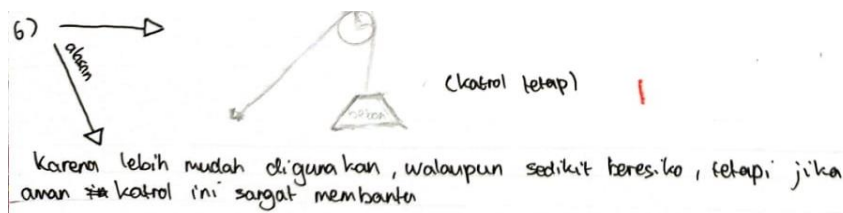 6)
alasan
beban
(katrol tetap)
1
Karena lebih mudah digunakan, walaupun sedikit beresiko, tetapi jika
aman katrol ini sangat membantu